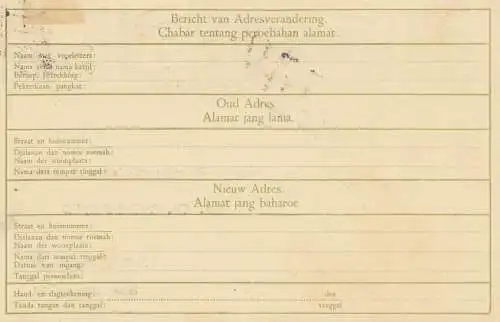 Bericht van Adresverandering.
Chabar tentang peroebahan alamat.
Naam met voorletters:
Nama serta nama ketjil:
Beroep, betrekking:
Pekerdjaan, pangkat:
Oud Adres.
Alamat jang lama.
Straat en huisnummer:
Djalanan dan nomor roemah:
Naam der woonplaats:
Nama dari tempat tinggal:
Nieuw Adres.
Alamat jang baharoe
Straat en huisnummer:
Djalanan dan nomor roemah:
Naam der woonplaats:
Nama dari tempat tinggal:
Datum van ingang:
Tanggal
Hand- en dagteekening: den
Tanda tangan dan tanggal: tanggal